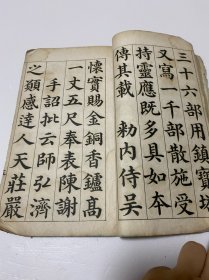 三十六部用鎮寶坊
又寫一千部散施受
持靈應既多具如本
傳其載勑內侍吴
懷寳賜金銅香鑪高
一丈五尺奉表陳謝
手詔批云師弘濟
之願感達人天莊嚴